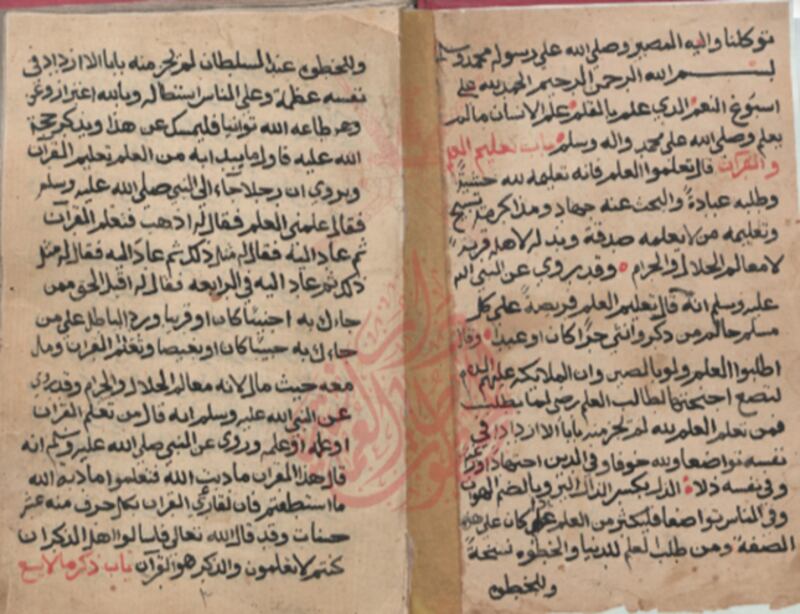 توكلنا واليه المصير وصلى الله على رسوله محمد وسلم
بسم الله الرحمن الرحيم الحمد لله على
اسبوغ النعم الذي علم بالقلم علم الانسان مالم
يعلم وصلى الله على محمد واله وسلم باب تعليم العلم
والقران قال تعلموا العلم فانه تعليمه لله خشية
وطلبه عبادة والبحث عنه جهاد ومذاكرته تسبيح
وتعليمه من لا يعلمه صدقة وبذله لاهله قربة
لا معالم الحلال والحرام وقد يروي عن النبي
عليه وسلم انه قال تعليم العلم فريضة على كل
مسلم حالم من ذكر وانثى حرا كان او عبدا وقال
اطلبوا العلم ولو بالصين وان الملائكة عليهم السلام
لتضع اجنحتها لطالب العلم رضى لما يطلب
فمن تعلم العلم لله لم يحز منه بابا الا ازداد في
نفسه تواضعا ولله خوفا وفي الدين اجتهادا
وفي نفسه ذلا الذل بكسر الذال البر وبالضم الهون
وفي الناس تواضعا فليكثر من العلم كان على هذه
الصفة ومن طلب العلم للدنيا والخطوه
وللخطوه
وللخطوه عند السلطان لم يحز منه بابا الا ازداد في
نفسه عظمة وعلى الناس استطالة وبالله اغترارا وعن
وهر طاعه الله توانيا فليمسك عن هذا ويذكر حجة
الله عليه فاول ما يبدا به من العلم تعليم القران
ويروى ان رجلا جاء الى النبي صلى الله عليه وسلم
فقال علمني العلم فقال له اذهب فتعلم القران
ثم عاد اليه فقال له مثل ذلك ثم عاد اليه فقال له مثل
ذلك ثم عاد اليه في الرابعه فقال له اقبل الحق ممن
جاءك به احبيبا كان او قريبا ورد الباطل على من
جاءك به حبيبا كان او بغيضا وتعلم القران ومال
معه حيث مال لانه معالم الحلال والحرام وقد روي
عن النبي الله عليه وسلم انه قال من تعلم القران
او علمه او علم وروي عن النبي صلى الله عليه وسلم انه
قال هذا القران مادبة الله فتعلموا مادبة الله
ما استطعتم فان لقاري القران بكل حرف منه عشر
حسنات وقد قال الله تعالى فاسالوا اهل الذكر ان
كنتم لا تعلمون والذكر هو القران باب ذكر ما لا يسع